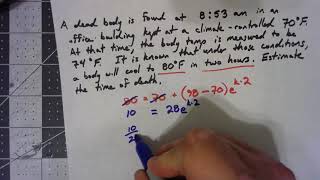 A dead body is found at 8:53 am in an
office building kept at a climate-controlled 70°F.
At that time, the body temp is measured to be
74°F. It is known that under those conditions,
a body will cool to 80°F in two hours. Estimate
the time of death.
80 = 70 + (98-70)e^k·2
10 = 28e^k·2
10